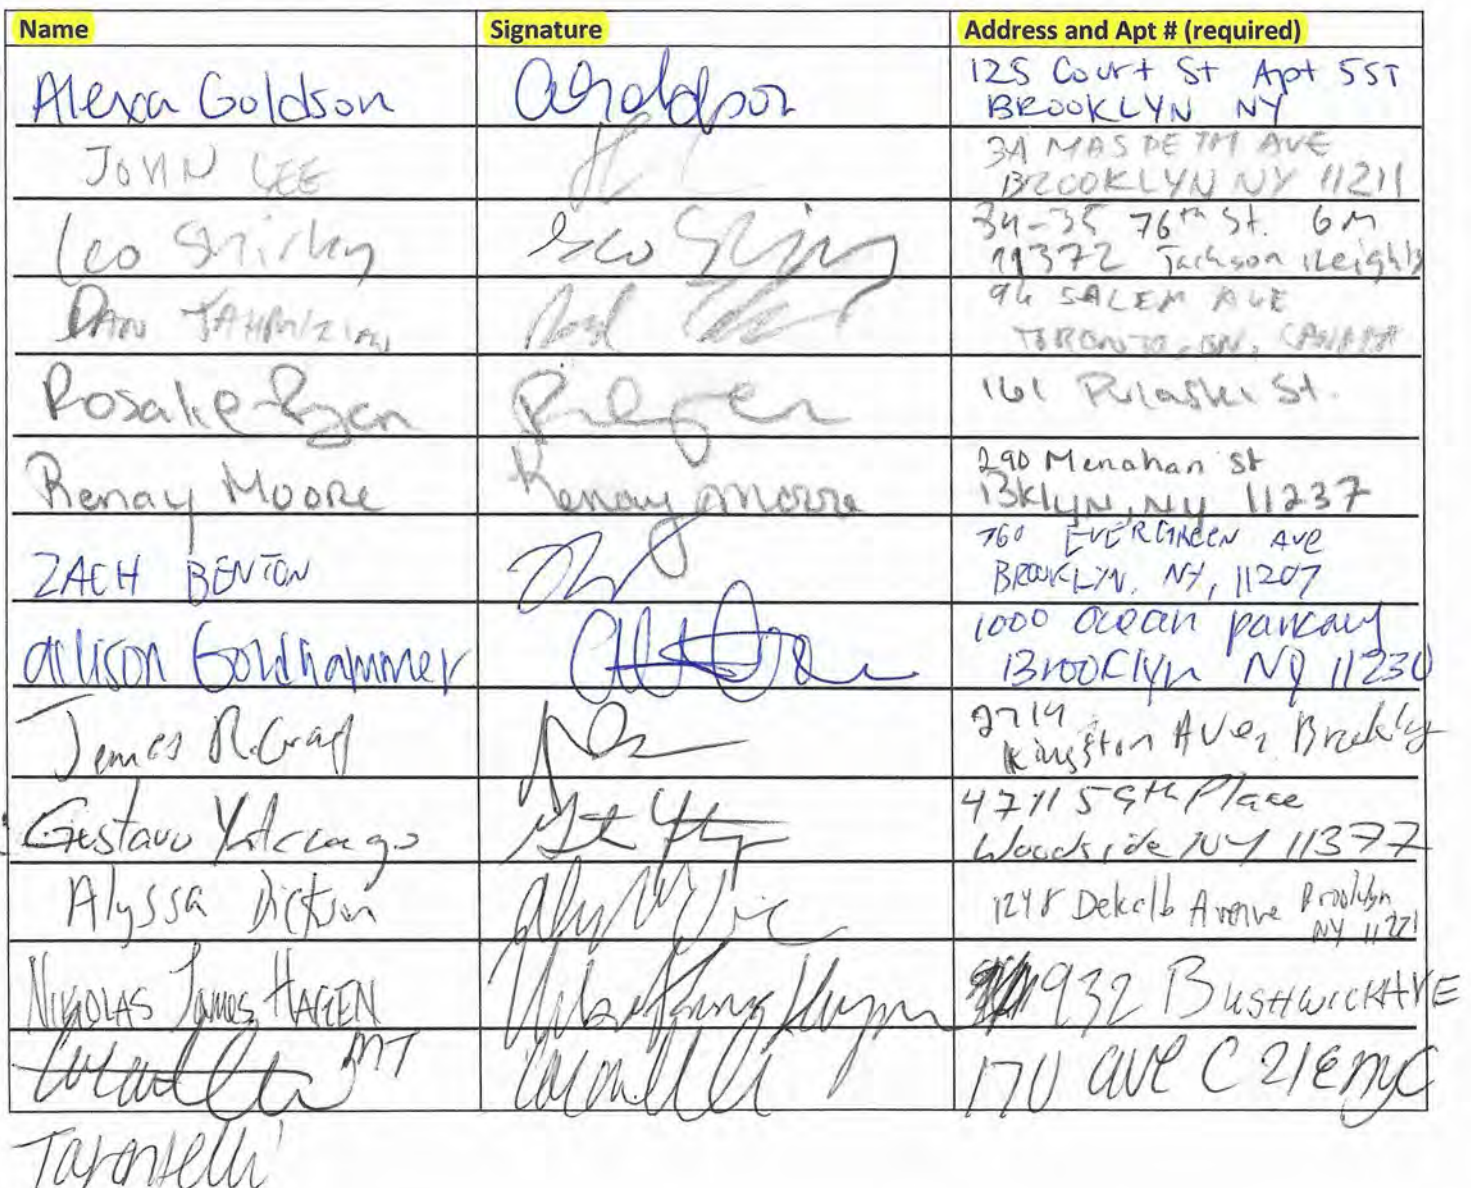 Name Signature Address and Apt # (required)
Alexa Goldson 125 Court St Apt 55T
BROOKLYN NY
JOHN LEE 34 MASPETH AVE
BROOKLYN NY 11211
Leo Shirky 34-35 76th St. 6M
11372 Jackson Heights
DAN 94 SALEM AVE
TORONTO, ON, CANADA
Rosalie 161 Pulaski St.
Renay Moore Renay Moore 290 Menahan St
BKLYN, NY 11237
ZACH BENTON 760 EVERGREEN AVE
BROOKLYN, NY, 11207
Allison Goldhammer 1000 Ocean parkway
Brooklyn NY 11230
James R. 2714
Kingston Ave, Brooklyn
Gustavo 4711 59th Place
Woodside NY 11377
Alyssa 1248 Dekalb Avenue Brooklyn
NY 11221
NIKOLAS James HAGEN 932 BUSHWICK AVE
MT 170 ave C 21E nyc
Tarantelli